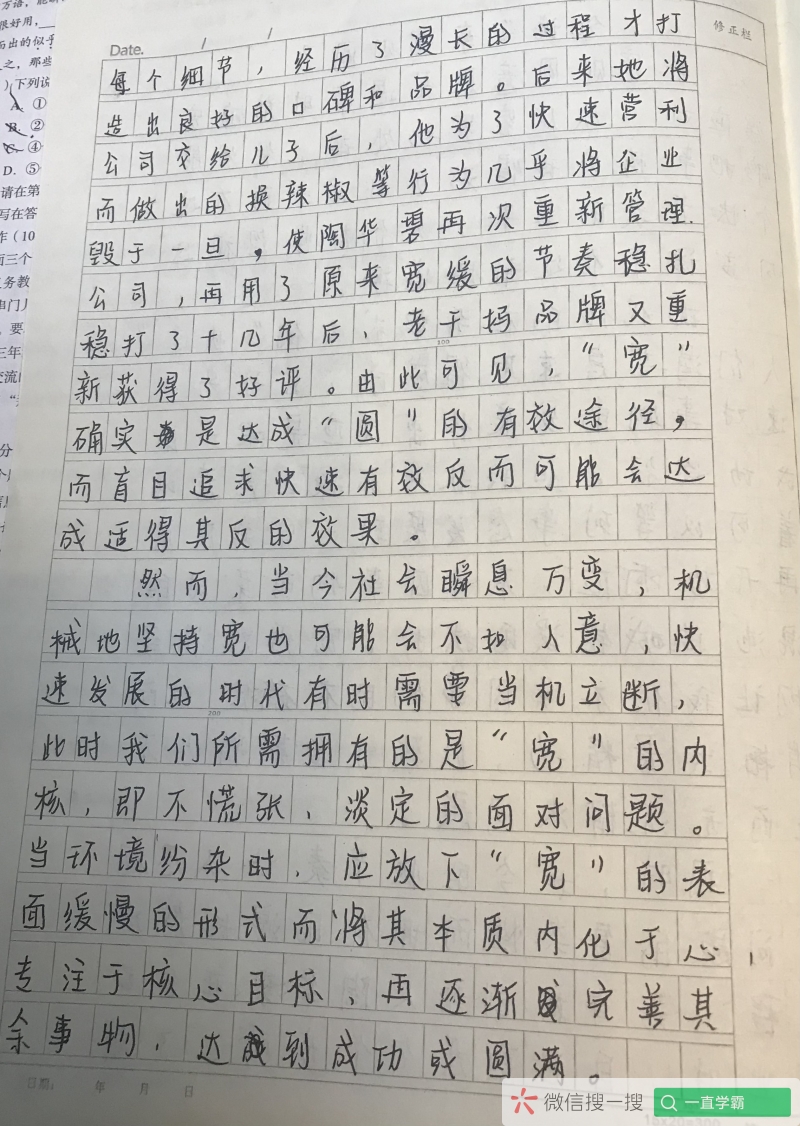 修正栏
Date.
每个细节，经历了漫长的过程才打
造出良好的口碑和品牌。后来她将
公司交给儿子后，他为了快速营利
而做出的换辣椒等行为几乎将企业
毁于一旦，使陶华碧再次重新管理
公司，再用了原来宽缓的节奏稳扎
稳打了十几年后，老干妈品牌又重
100
新获得了好评。由此可见，“宽”
确实是达成“圆”的有效途径，
而盲目追求快速有效反而可能会达
成适得其反的效果。
然而，当今社会瞬息万变，机
械地坚持宽也可能会不如人意，快
速发展的时代有时需要当机立断，
200
此时我们所需拥有的是“宽”的内
核，即不慌张，淡定的面对问题。
当环境纷杂时，应放下“宽”的表
面缓慢的形式而将其本质内化于心，
专注于核心目标，再逐渐完善其
余事物，达到成功或圆满。
日期： 年 月 日
微信搜一搜
一直学霸
很好用，
而出的似乎
之，那些
下列说
A ①
B. ②
C. ④
D. ⑤
请在第
写在答
作（10
面三个
义务教
串门儿
，要
三年
交流